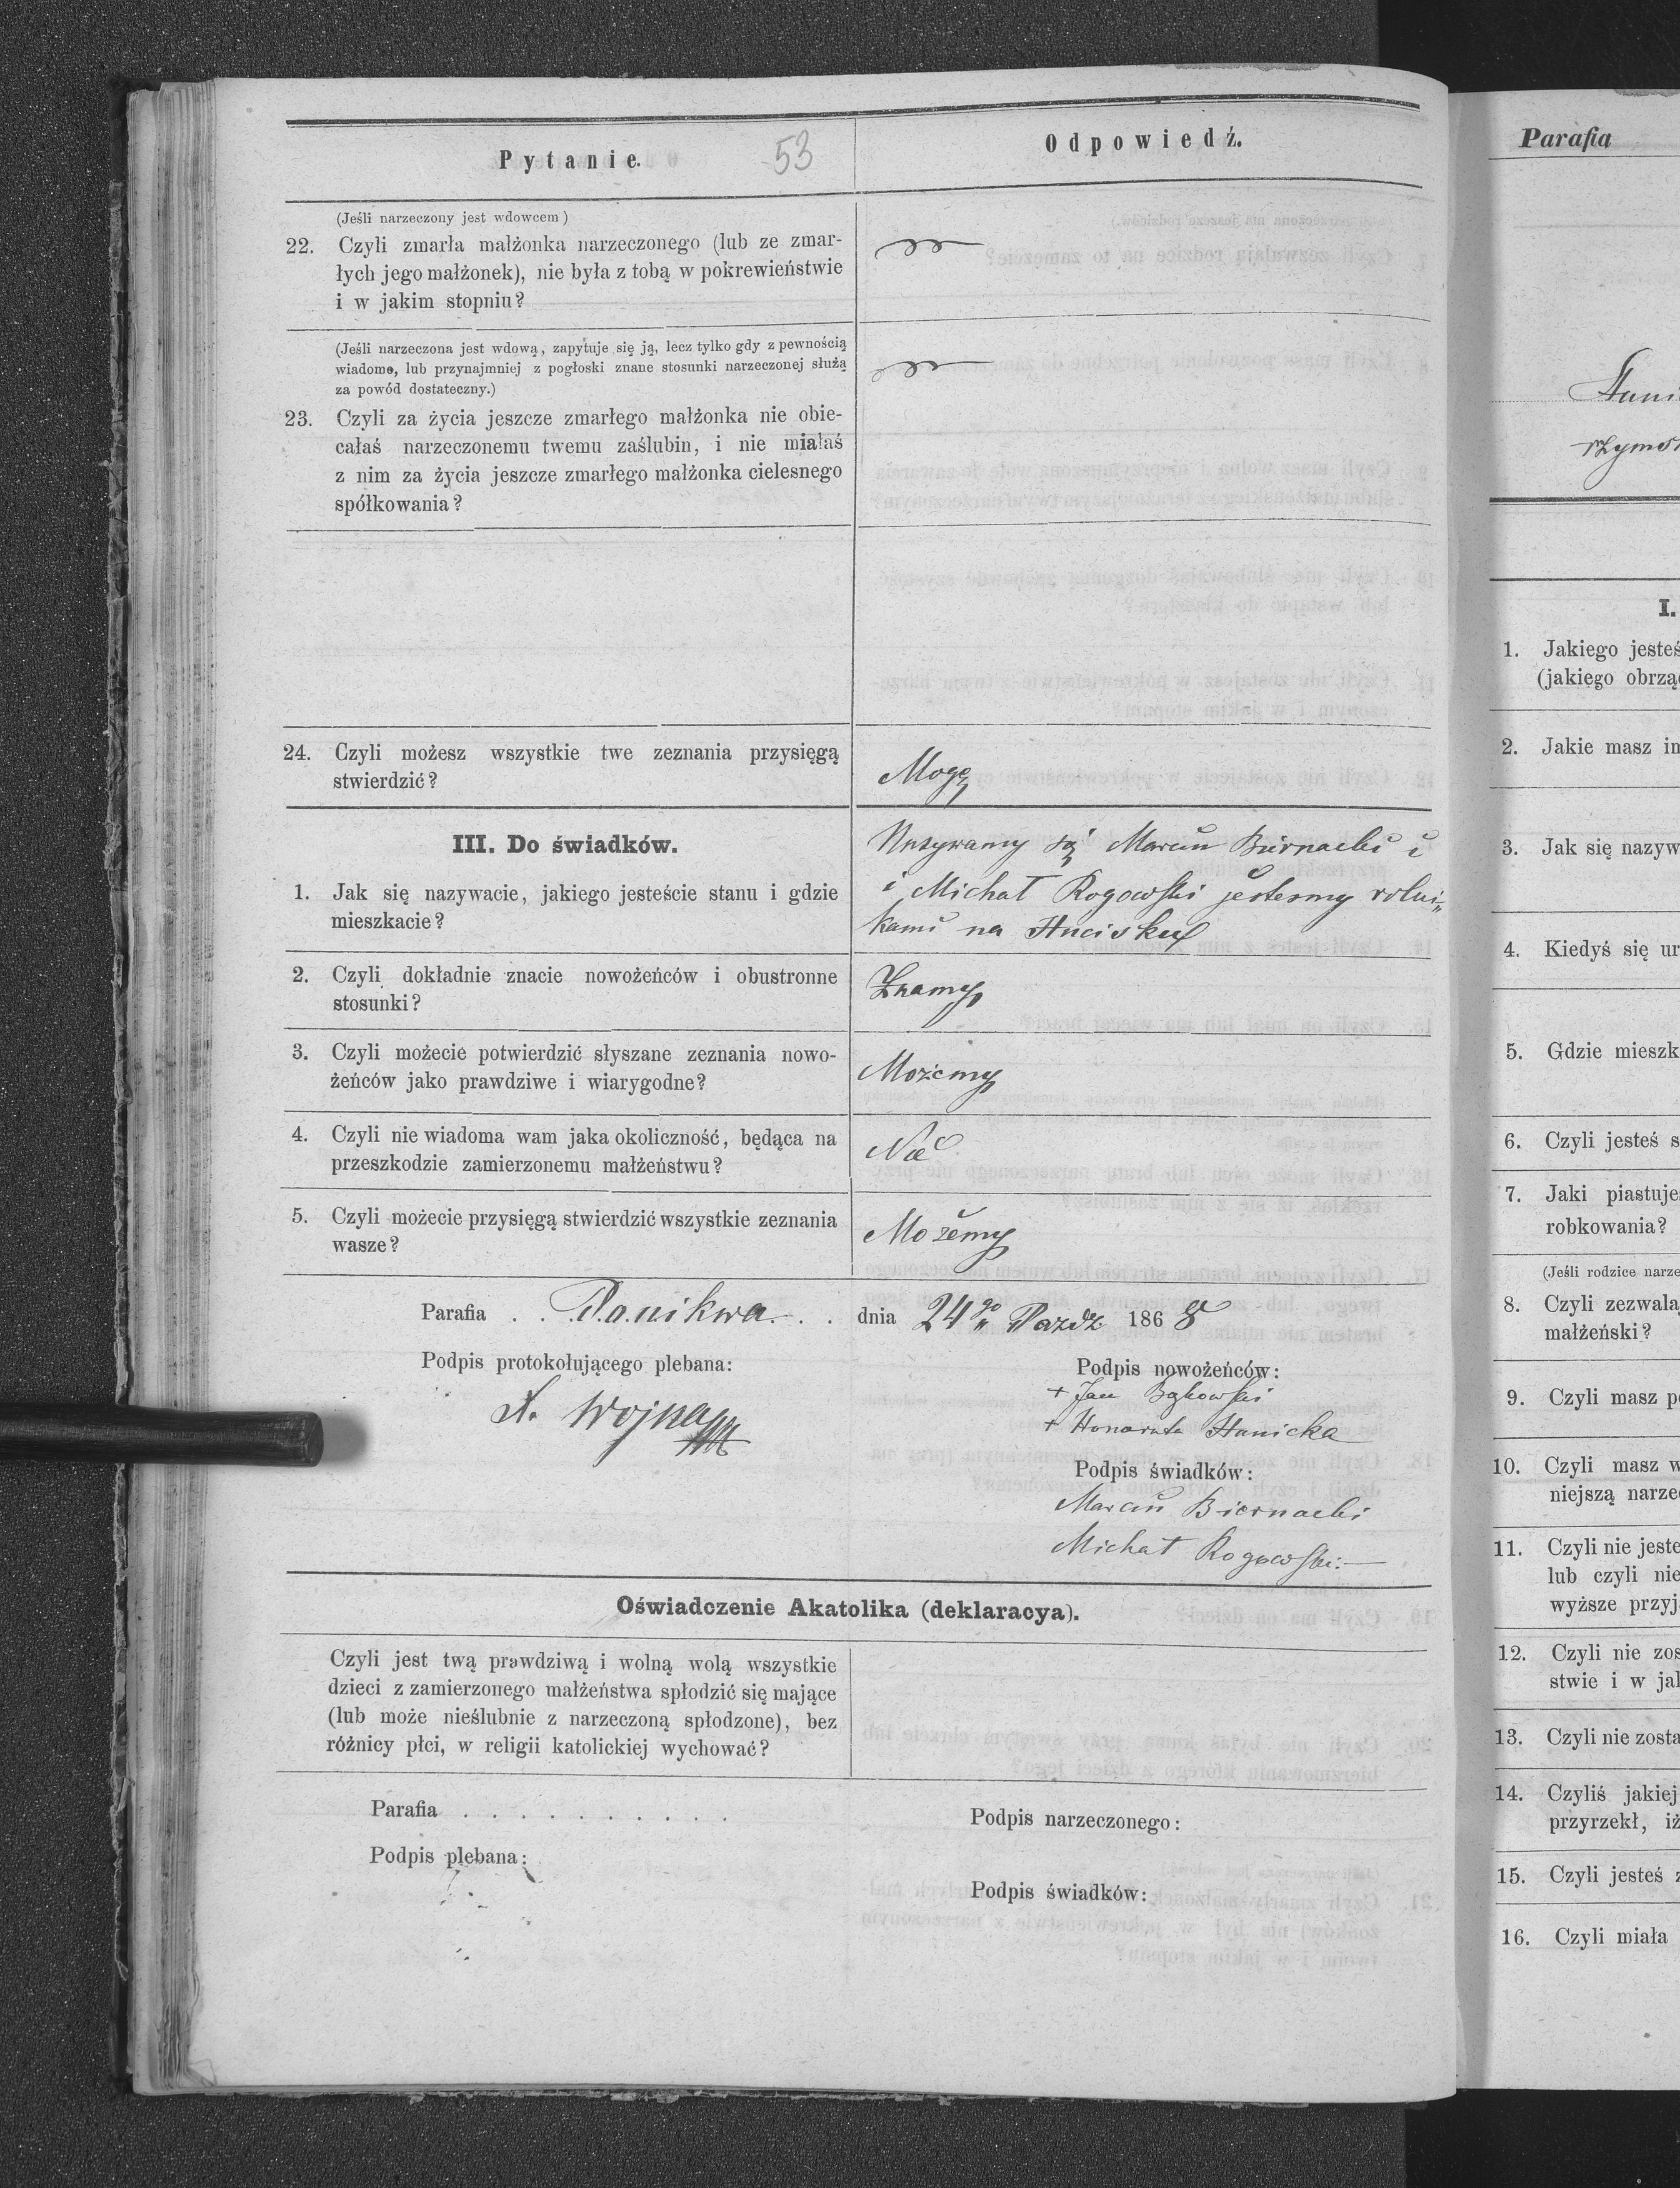 Pytanie. 53
Odpowiedź.
(Jeśli narzeczony jest wdowcem)
22. Czyli zmarła małżonka narzeczonego (lub ze zmar-
łych jego małżonek), nie była z tobą w pokrewieństwie
i w jakim stopniu?
(Jeśli narzeczona jest wdową, zapytuje się ją, lecz tylko gdy z pewnością
wiadome, lub przynajmniej z pogłoski znane stosunki narzeczonej służą
za powód dostateczny.)
23. Czyli za życia jeszcze zmarłego małżonka nie obie-
całaś narzeczonemu twemu zaślubin, i nie miałaś
z nim za życia jeszcze zmarłego małżonka cielesnego
spółkowania?
24. Czyli możesz wszystkie twe zeznania przysięgą
stwierdzić?
Mogę
III. Do świadków.
1. Jak się nazywacie, jakiego jesteście stanu i gdzie
mieszkacie?
Nazywamy się Marcin Biernacki i
i Michał Rogowski jestesmy rolni„
kami na Hucisku
2. Czyli dokładnie znacie nowożeńców i obustronne
stosunki?
Znamy
3. Czyli możecie potwierdzić słyszane zeznania nowo-
żeńców jako prawdziwe i wiarygodne?
Możemy
4. Czyli nie wiadoma wam jaka okoliczność, będąca na
przeszkodzie zamierzonemu małżeństwu?
Nie
5. Czyli możecie przysięgą stwierdzić wszystkie zeznania
wasze?
Możemy
Parafia . . Ponikwa . . . dnia 24go Pazdz 1868
Podpis protokołującego plebana:
Wojna
Podpis nowożeńców:
+ Jan Bąkowski
+ Honorata Hanicka
Podpis świadków:
Marcin Biernacki
Michał Rogowski
Oświadczenie Akatolika (deklaracya).
Czyli jest twą prawdziwą i wolną wolą wszystkie
dzieci z zamierzonego małżeństwa spłodzić się mające
(lub może nieślubnie z narzeczoną spłodzone), bez
różnicy płci, w religii katolickiej wychować?
Parafia . . . . . . . . . .
Podpis plebana:
Podpis narzeczonego:
Podpis świadków:
Parafia
I.
1. Jakiego jesteś
(jakiego obrzą
2. Jakie masz im
3. Jak się nazyw
4. Kiedyś się ur
5. Gdzie mieszk
6. Czyli jesteś s
7. Jaki piastuje
robkowania?
(Jeśli rodzice narze
8. Czyli zezwala
małżeński?
9. Czyli masz p
10. Czyli masz w
niejszą narze
11. Czyli nie jeste
lub czyli nie
wyższe przyj
12. Czyli nie zos
stwie i w jal
13. Czyli nie zosta
14. Czyliś jakiej
przyrzekł, iż
15. Czyli jesteś z
16. Czyli miała